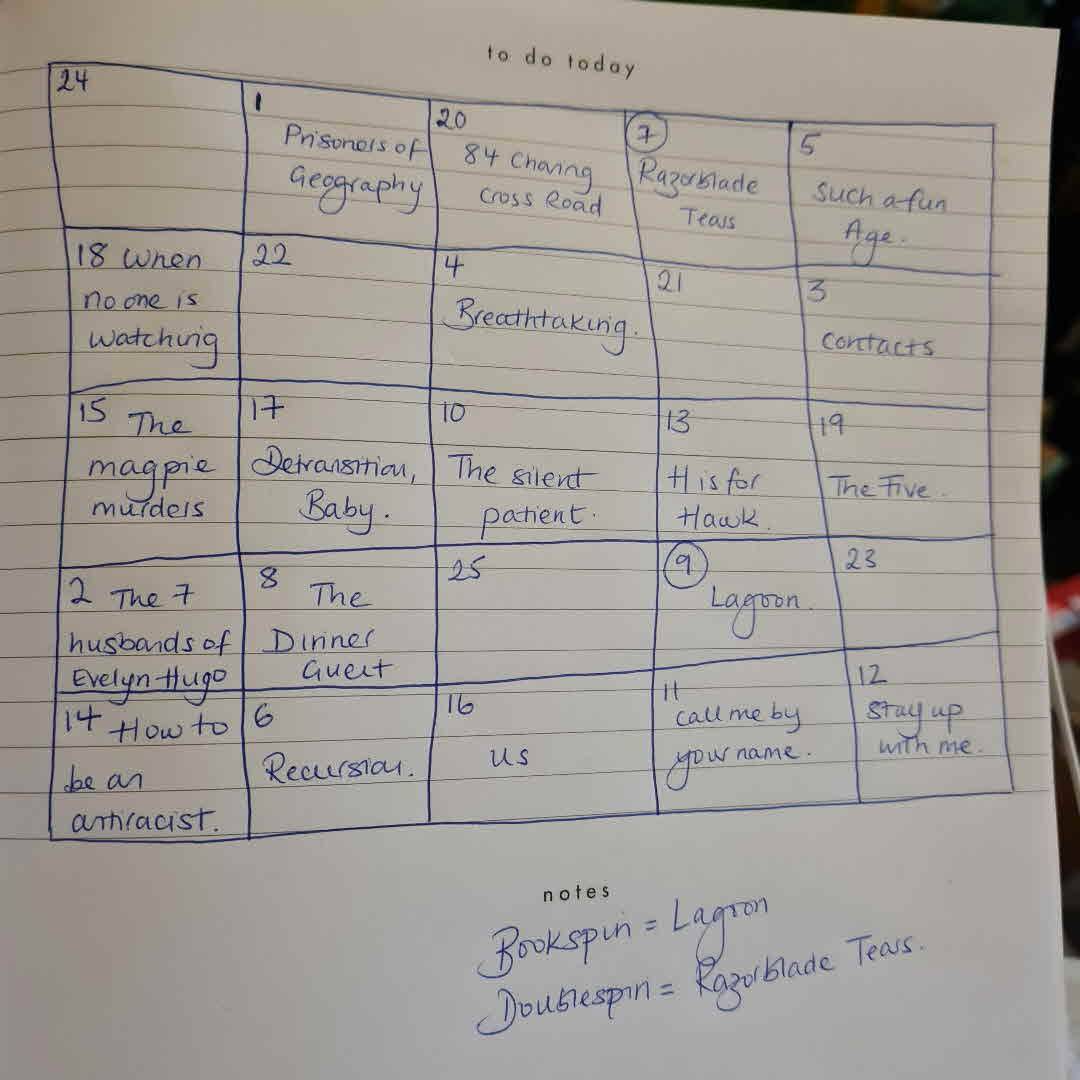 to do today
24
1
Prisoners of
Geography
20
84 Charing
Cross Road
7
Razorblade
Tears
5
Such a fun
Age.
18 When
no one is
watching
22
4
Breathtaking.
21
3
contacts
15 The
magpie
murders
17
Detransition,
Baby.
10
The silent
patient.
13
H is for
Hawk.
19
The Five.
2 The 7
husbands of
Evelyn Hugo
8 The
Dinner
Guest
25
9
Lagoon.
23
14 How to
be an
antiracist.
6
Recursion.
16
us
11
call me by
your name.
12
Stay up
with me.
notes
Bookspin = Lagoon
Doublespin = Razorblade Tears.